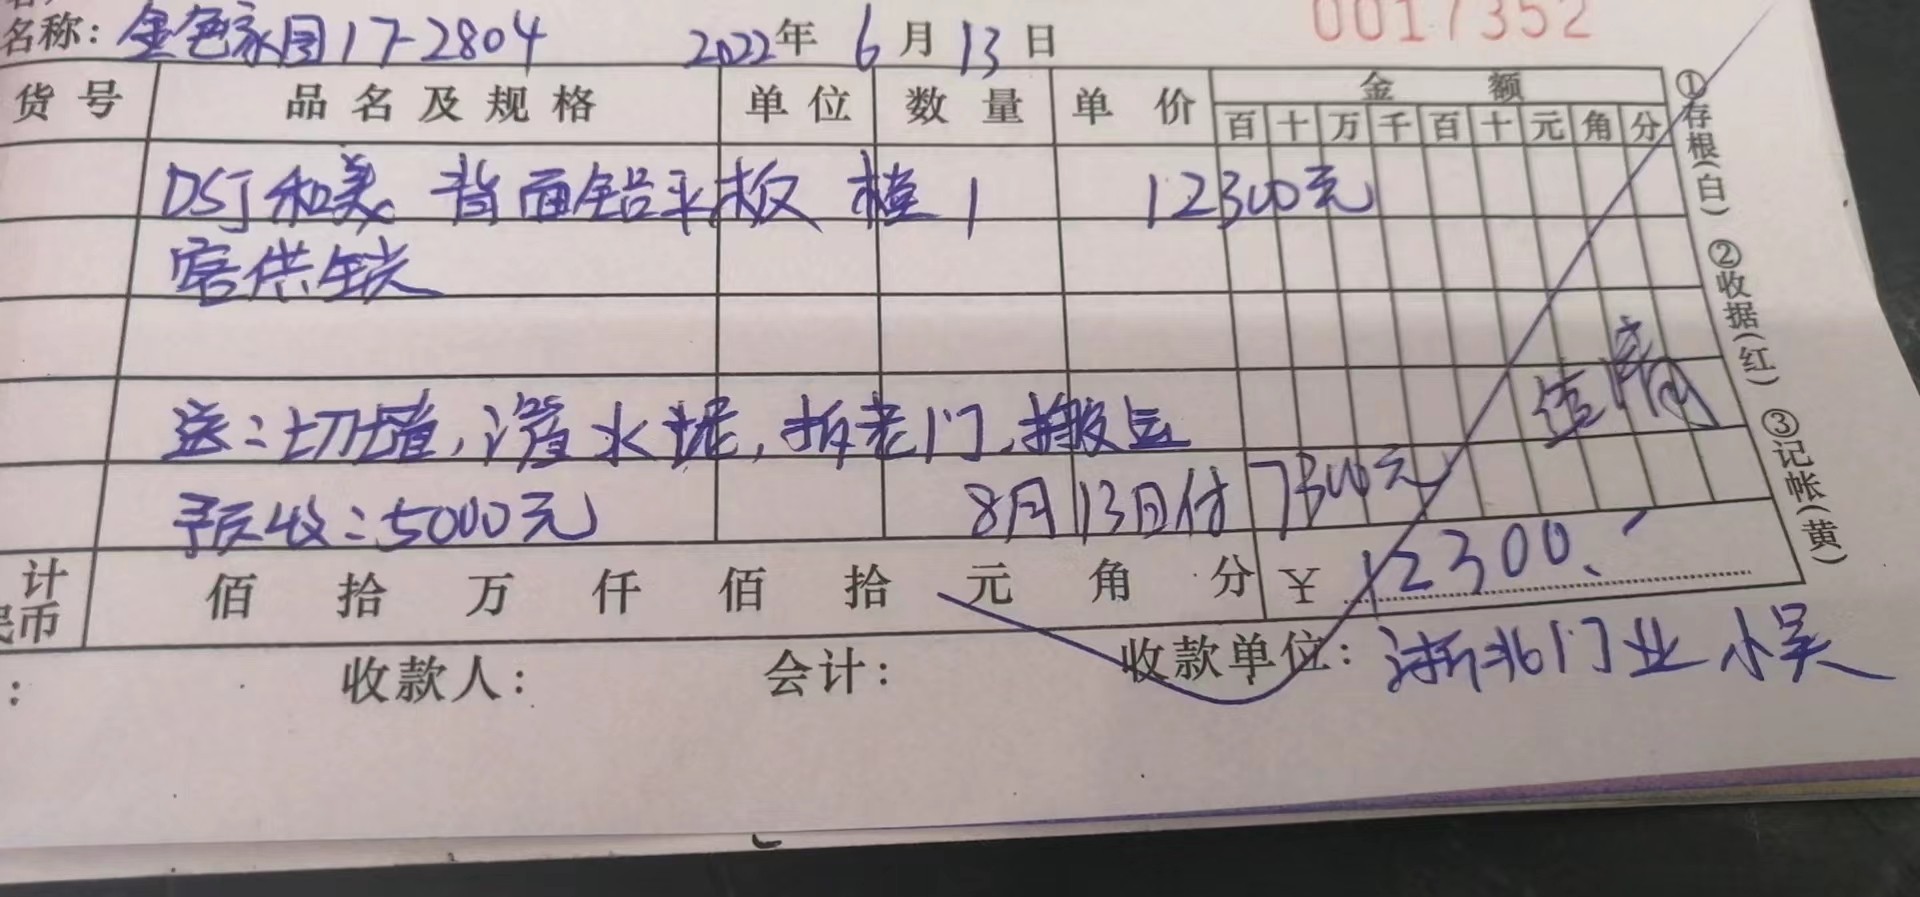 名称：金色家园17-2804 2022年6月13日 0017352
货号 品名及规格 单位 数量 单价 金额
百 十 万 千 百 十 元 角 分
DSJ和美 背面铝平板 樘 1 12300元
客供锁
送：切墙，灌水泥，拆老门，搬运
预收：5000元 8月13日付7300元
计 佰 拾 万 仟 佰 拾 元 角 分 ¥12300.
民币
收款人： 会计： 收款单位：浙北门业 小吴
①存根(白) ②收据(红) ③记帐(黄)